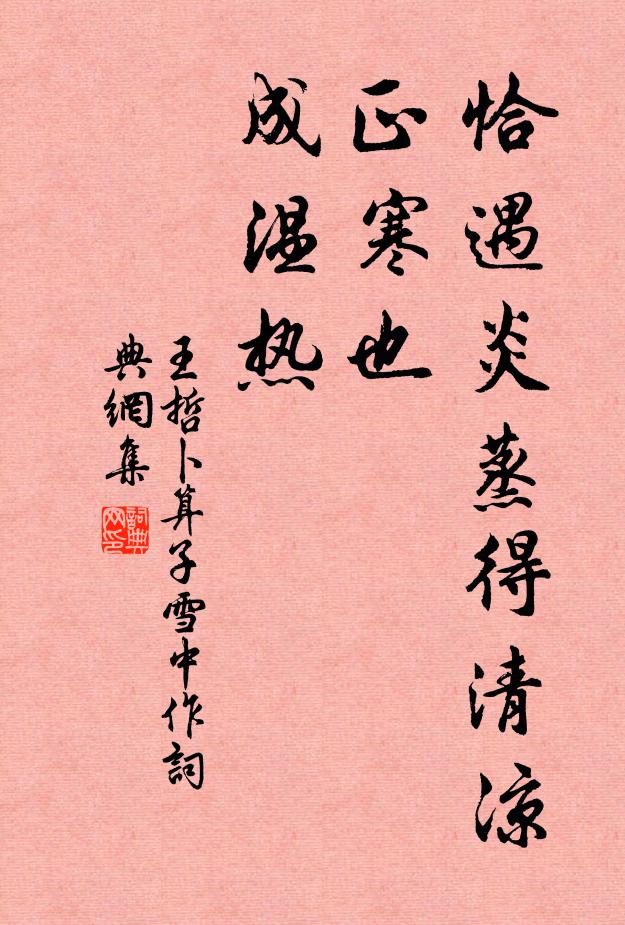 恰遇炎蒸得清凉
正寒也
成温热
王哲卜算子雪中作詞
典網集
詞典
网印